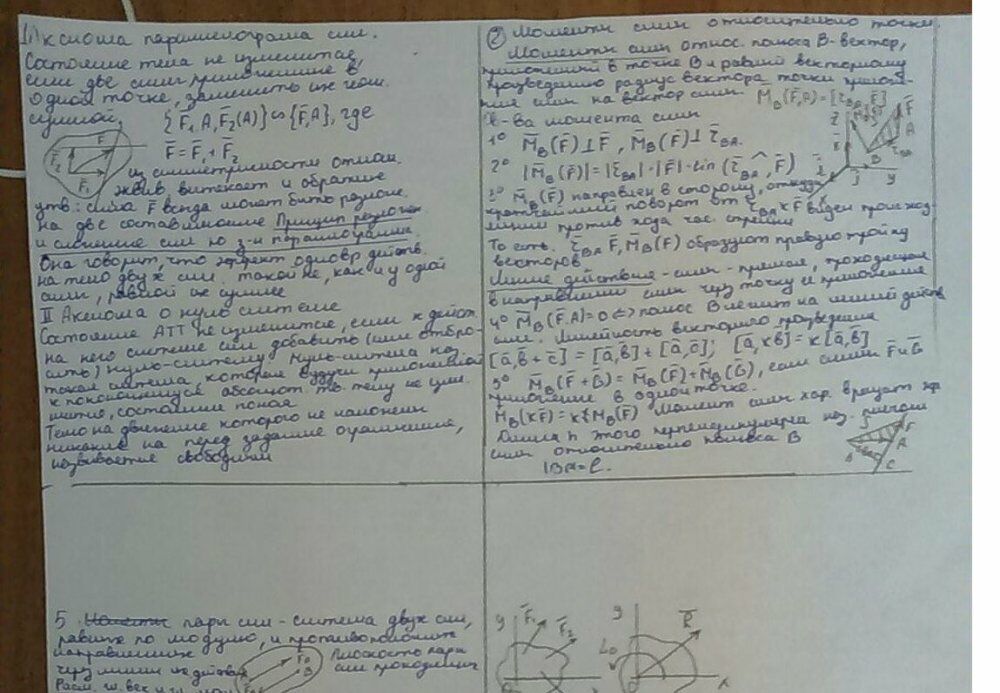 1) Аксиома параллелограма сил.
Состояние тела не изменится,
если две силы приложенные в
одной точке, заменить их геом.
суммой,
{F̄₁,A, F̄₂(A)} ∾ {F̄,A}, где
F̄ = F̄₁ + F̄₂
F̄₂ F̄ F̄₁
из симметричности отнош.
эквив. вытекает и обратное
утв: сила F̄ всегда может быть разлож.
на две составляющие Принцип разложен
и сложение сил по з-н параллелограмма.
Она говорит, что эффект одновр. действ.
на тело двух сил такой же, как и у одной
силы, равной их сумме
II Аксиома о нуль системе
Состояние АТТ не изменится, если к действ.
на него системе сил добавить (или отбро-
сить) нуль-систему. Нуль-система наз
такая система, которая будучи приложенной
к покоющемуся абсолют. тв. телу не изм.
состояния покоя.
Тело на движение которого не наложены
никакие на перед заданые ограничения,
называется свободным
2) Моменты силы относительно точки.
Моменты силы относ. полюса B - вектор,
приложений в точке B и равный векторному
произведению радиус вектора точки прилож-
ния силы на вектор силы M̄_B(F̄,A) = [r̄_BA, F̄]
Св-ва момента силы
1° M̄_B(F̄) ⊥ F̄, M̄_B(F̄) ⊥ r̄_BA.
2° |M̄_B(F̄)| = |r̄_BA|·|F̄|·sin(r̄_BA ^ F̄)
3° M̄_B(F̄) направлен в сторону, откуда
кратчайший поворот от r̄_BA к F̄ виден происход-
ящим против хода час. стрелки
То есть. r̄_BA, F̄, M̄_B(F) образуют правую тройку
векторов
Линия действия - силы - прямая, проходящая
в направлении силы через точку её приложения
4° M̄_B(F̄,A) = 0 <=> полюс B лежит на линий действ
силы. Линейность векторного произведения
[ā, b̄ + c̄] = [ā, b̄] + [ā, c̄]; [ā, к b̄] = к [ā, b̄]
5° M̄_B(F̄ + Ḡ) = M̄_B(F̄) + M̄_B(Ḡ), если силы F̄ и Ḡ
приложение в одной точке.
M̄_B(кF̄) = к M_B(F̄) Момент силы хар. вращат эф
Длина h этого перпендикуляра наз. плечом
силы относительно полюса B
|BA| = l.
5. пары сил - система двух сил,
равных по модулю, и противоположных
направленных
через линии их действия
Плоскость пары
сил проходящих
y F̄₁ F̄₂
y R̄ L₀ x